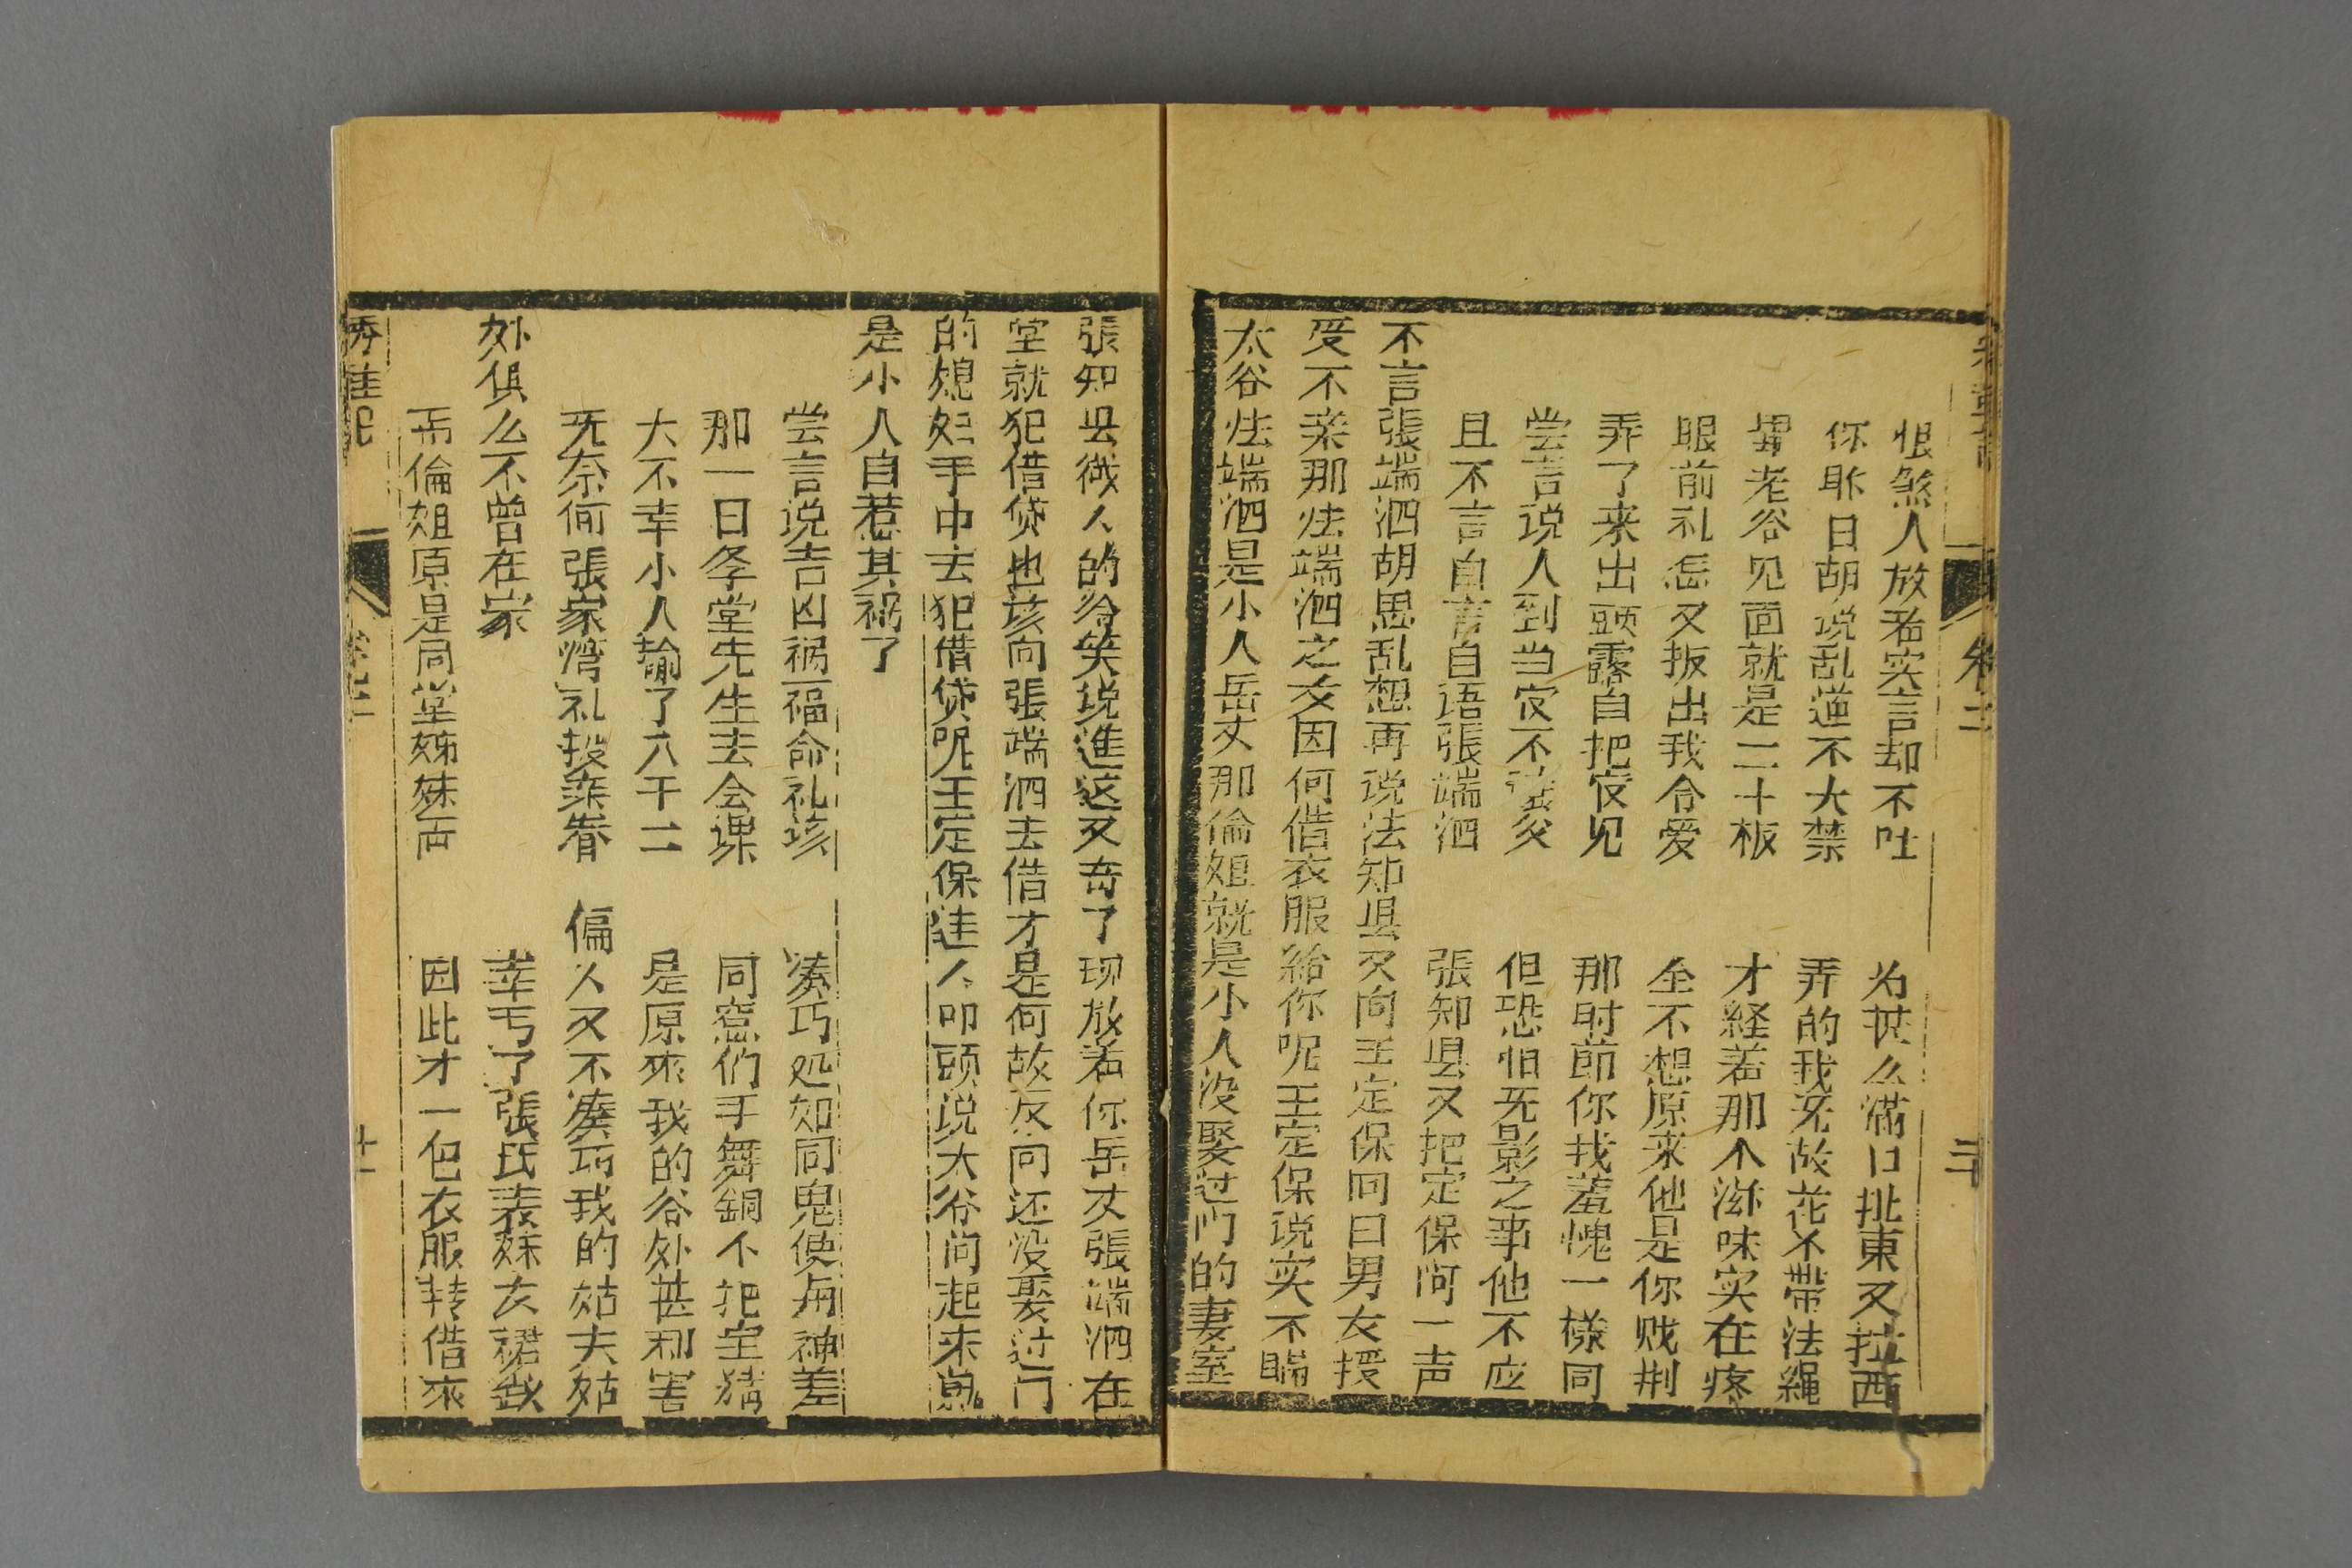 恨煞人放着实言却不吐 为甚么满口扯東又拉西
你耿日胡说乱道不大禁 弄的我无故花不帶法繩
老谷见面就是二十板 才経着那个滋味实在疼
眼前礼怎又扳出我令爱 全不想原来他是你贱荆
弄了来出頭露自把官见 那时節你我羞愧一様同
尝言说人到当官不父 但恐怕无影之事他不应
且不言自言自语張端泗 張知县又把定保问一声
不言張端泗胡思乱想再说法知县又向王定保问曰男女授
受不亲那法端泗之女因何借衣服給你呢王定保说实不瞒
太谷法端泗是小人岳丈那倫姐就是小人没娶过门的妻室
張知县微人的冷笑说進这又奇了现放着你岳丈張端泗在
堂就犯借贷也该向張端泗去借才是何故反向还没娶过门
的媳妇手中去犯借贷呢王定保進人叩頭说大谷问起来就
是小人自惹其祸了
尝言说吉凶祸福命礼该 凑巧処如同鬼使舟神差
那一日冬堂先生去会课 同窓们手舞銅不把宝猜
大不幸小人輸了六千二 是原來我的谷处甚利害
无奈何張家湾礼投亲眷 偏人又不凑巧我的姑夫姑
处俱么不曾在家 幸亏了張氏表妹去裙釵
而倫姐原是同堂姊妹両 因此才一包衣服转借來
卷二